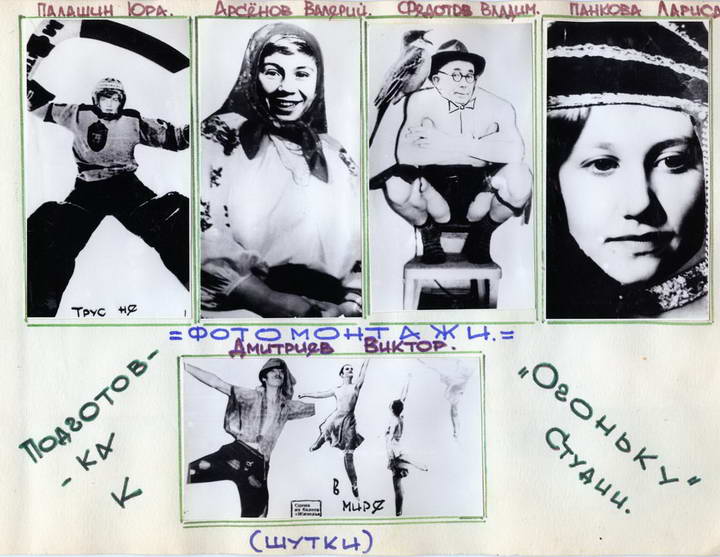 ПАЛАШИН ЮРА. АРСЁНОВ ВАЛЕРИЙ. ФЕДОТОВ ВЛАДИМ. ПАНКОВА ЛАРИСА
ТРУС НЕ
=ФОТОМОНТАЖИ.=
ДМИТРИЕВ ВИКТОР.
ПОДГОТОВ-
-КА
К
"ОГОНЬКУ"
СТУДИИ.
В
МИРЕ
(ШУТКИ)